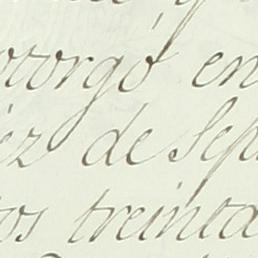 otorgó en
éz de Sep
tos treinta